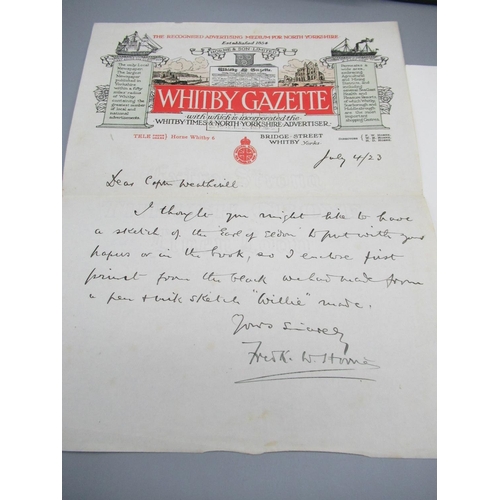 THE RECOGNISED ADVERTISING MEDIUM FOR NORTH YORKSHIRE
Established 1854
HORNE & SON LIMITED
Whitby Gazette
WHITBY GAZETTE
with which is incorporated the
WHITBY TIMES & NORTH YORKSHIRE ADVERTISER
TELS Horne Whitby 6
BRIDGE-STREET
WHITBY Yorks
July 4/23
Dear Captn Weatherill
I thought you might like to have
a sketch of the Earl of Eldon to put with your
papers or in the book, so I enclose first
print from the block we had made from
a pen & ink sketch "Willie" made.
Yours Sincerely
Fredk. W. Horne